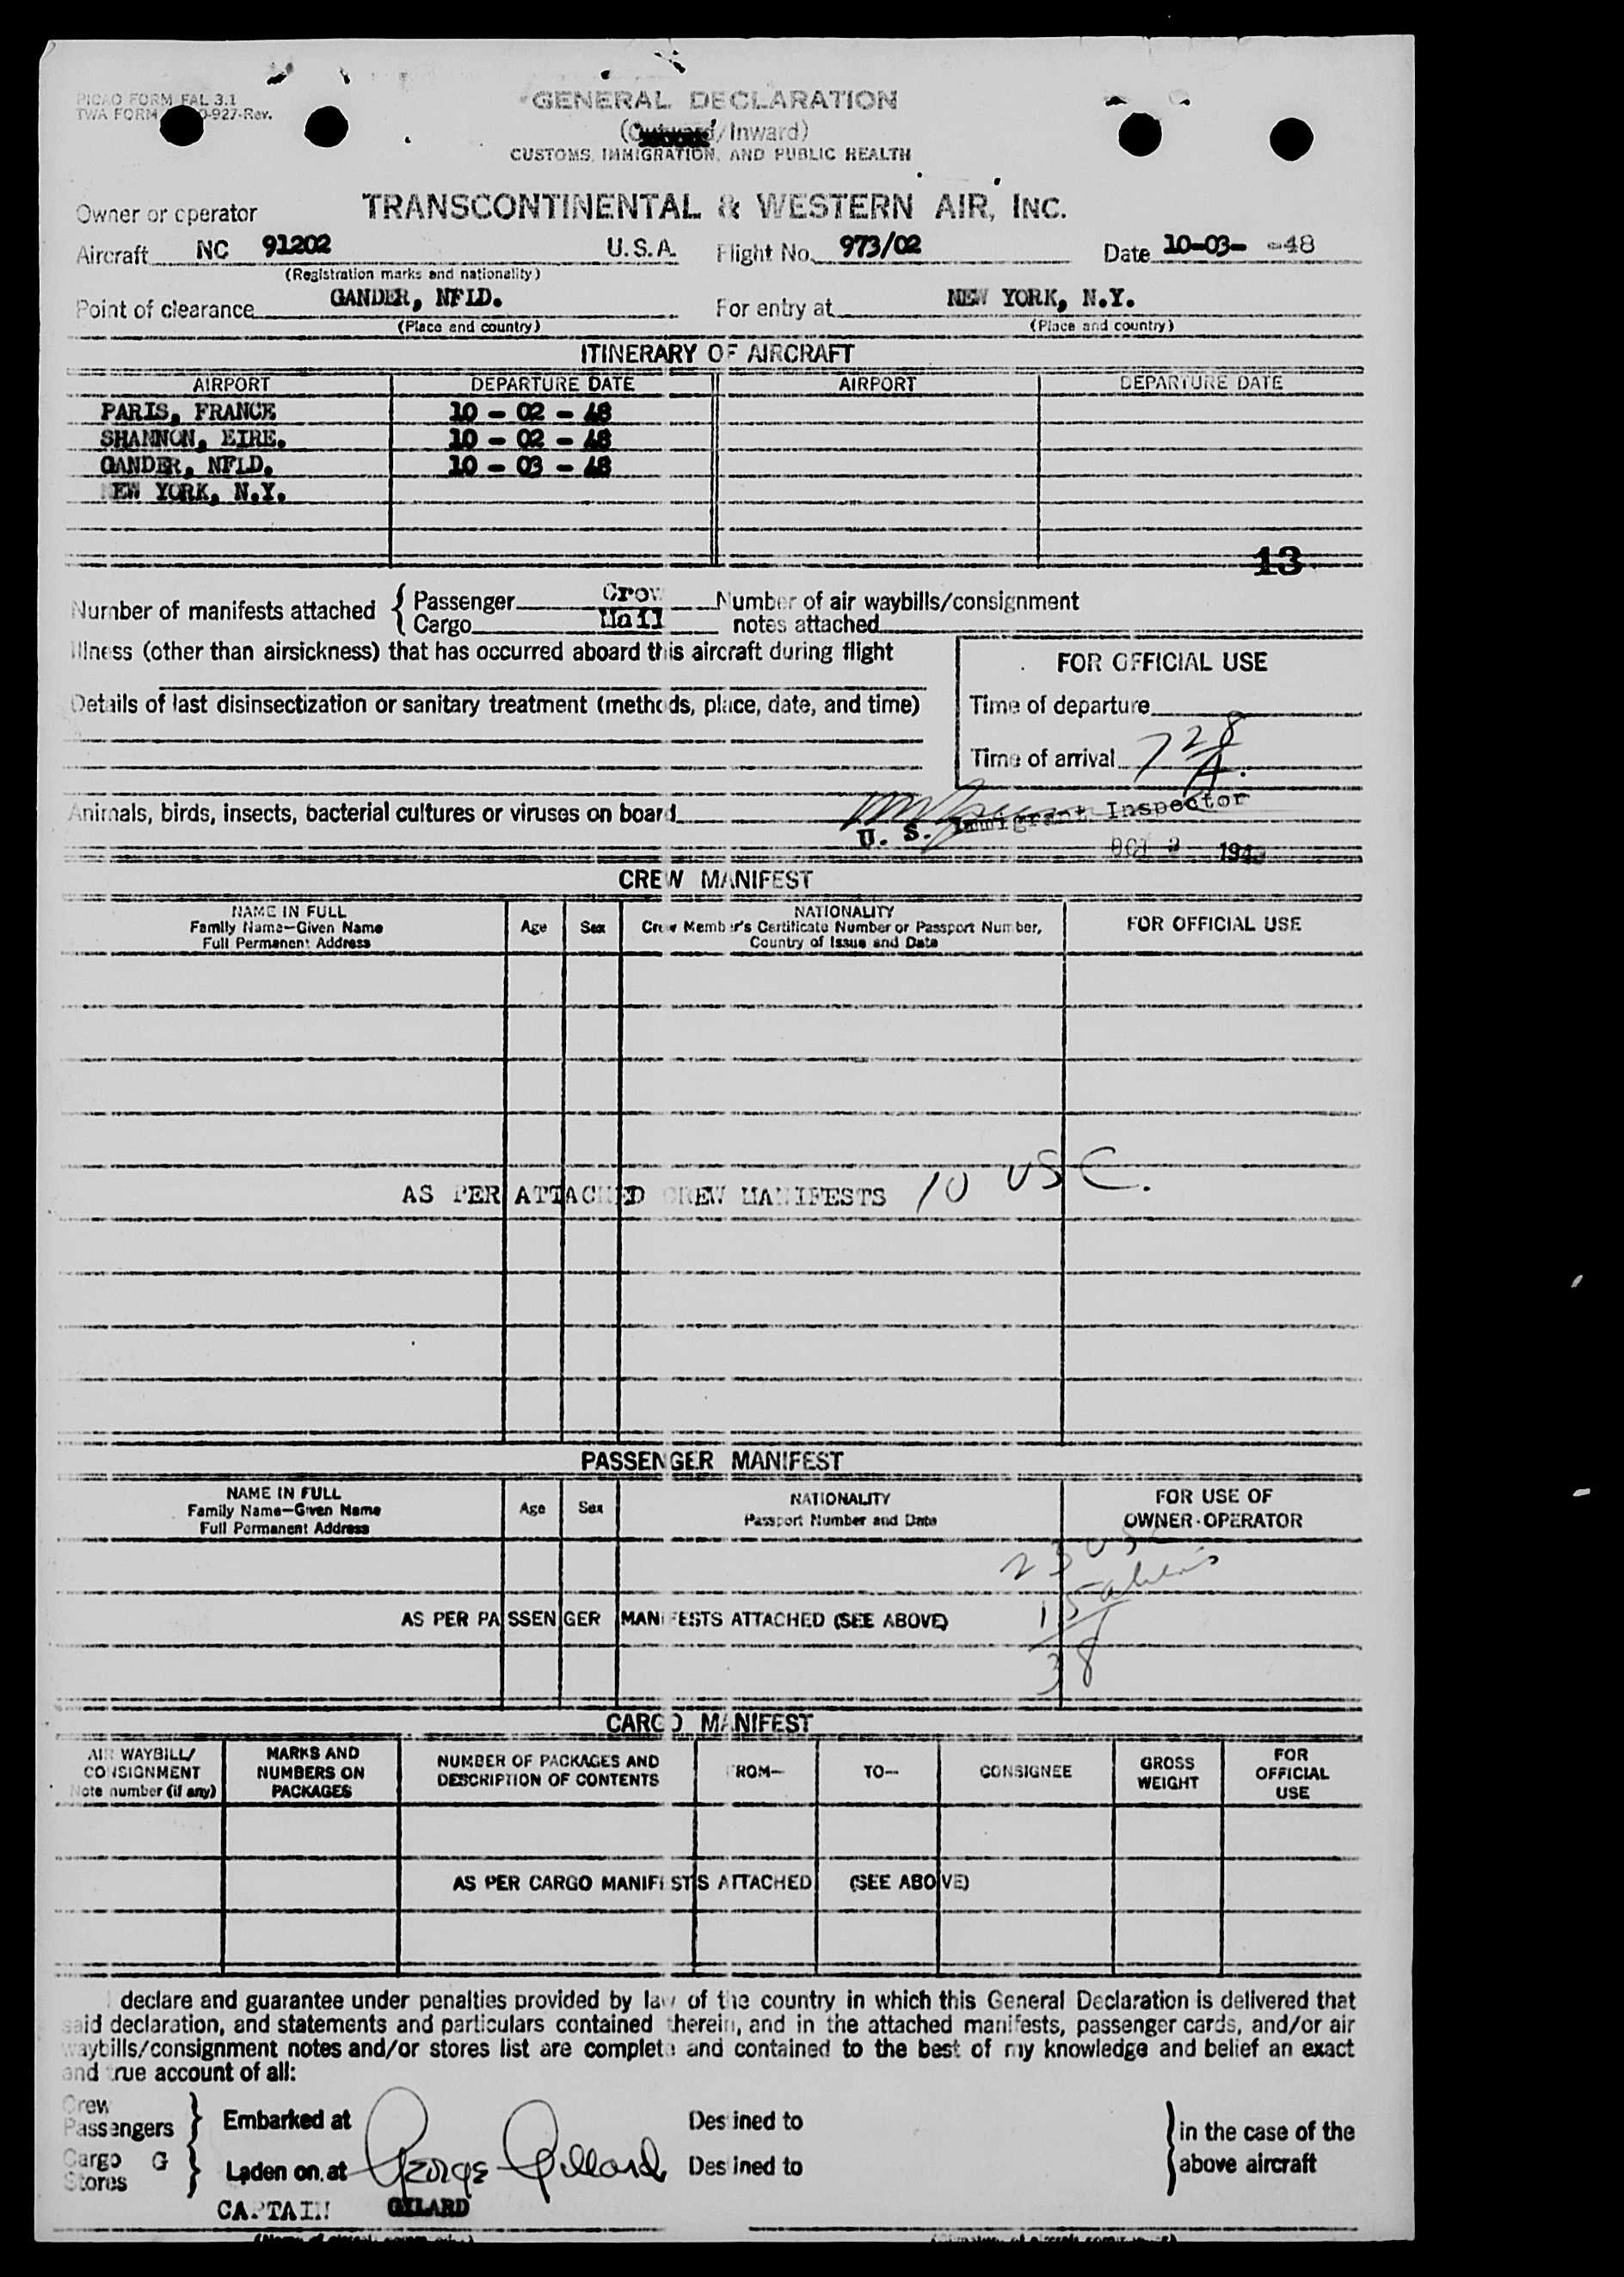 PICAO FORM FAL 3.1
TWA FORM 0-927-Rev.
GENERAL DECLARATION
(Outward/Inward)
CUSTOMS, IMMIGRATION, AND PUBLIC HEALTH
Owner or operator TRANSCONTINENTAL & WESTERN AIR, INC.
Aircraft NC 91202 U.S.A. Flight No. 973/02 Date 10-03- -48
(Registration marks and nationality)
Point of clearance GANDER, NFLD. For entry at NEW YORK, N.Y.
(Place and country) (Place and country)
ITINERARY OF AIRCRAFT
AIRPORT DEPARTURE DATE AIRPORT DEPARTURE DATE
PARIS, FRANCE 10 - 02 - 48
SHANNON, EIRE. 10 - 02 - 48
GANDER, NFLD. 10 - 03 - 48
NEW YORK, N.Y.
13
Number of manifests attached { Passenger Crew Number of air waybills/consignment
Cargo Mail notes attached
Illness (other than airsickness) that has occurred aboard this aircraft during flight
FOR OFFICIAL USE
Details of last disinsectization or sanitary treatment (methods, place, date, and time) Time of departure
Time of arrival 7 28 A.
Animals, birds, insects, bacterial cultures or viruses on board
U. S. Immigrant Inspector
OCT 3 194
CREW MANIFEST
NAME IN FULL
Family Name—Given Name
Full Permanent Address
Age Sex
NATIONALITY
Crew Member's Certificate Number or Passport Number,
Country of Issue and Date
FOR OFFICIAL USE
AS PER ATTACHED CREW MANIFESTS 10 USC.
PASSENGER MANIFEST
NAME IN FULL
Family Name—Given Name
Full Permanent Address
Age Sex
NATIONALITY
Passport Number and Date
FOR USE OF
OWNER-OPERATOR
23 USC
15 aliens
AS PER PASSENGER MANIFESTS ATTACHED (SEE ABOVE)
38
CARGO MANIFEST
AIR WAYBILL/
CONSIGNMENT
Note number (if any)
MARKS AND
NUMBERS ON
PACKAGES
NUMBER OF PACKAGES AND
DESCRIPTION OF CONTENTS
FROM— TO— CONSIGNEE
GROSS
WEIGHT
FOR
OFFICIAL
USE
AS PER CARGO MANIFESTS ATTACHED (SEE ABOVE)
I declare and guarantee under penalties provided by law of the country in which this General Declaration is delivered that
said declaration, and statements and particulars contained therein, and in the attached manifests, passenger cards, and/or air
waybills/consignment notes and/or stores list are complete and contained to the best of my knowledge and belief an exact
and true account of all:
Crew
Passengers } Embarked at Destined to } in the case of the
Cargo G
Stores } Laden on at George Gillard Destined to above aircraft
CAPTAIN GILARD